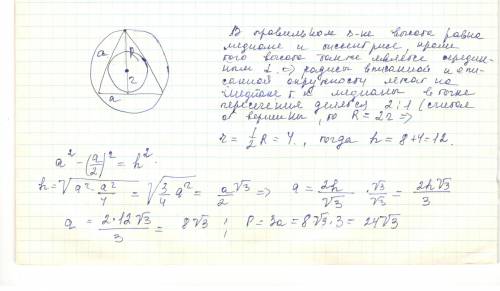 В правильном Δ-ке высота равна
медиане и биссектрисе, кроме
того высота также является середин-
ным ⊥. ⇒ радиусы вписанной и опи-
санной окружности лежат на
медиане т.к. медианы в точке
пересечения делятся 2:1 (считая
от вершины), то R = 2r ⇒
r = 1/2 R = 4., тогда h = 8+4=12.
a R
r
a
a² - (a/2)² = h².
h = √(a² - a²/4) = √(3/4 a²) = a√3/2 ⇒ a = 2h/√3 · √3/√3 = 2h√3/3
a = 2·12√3/3 = 8√3 ; P = 3a = 8√3·3 = 24√3